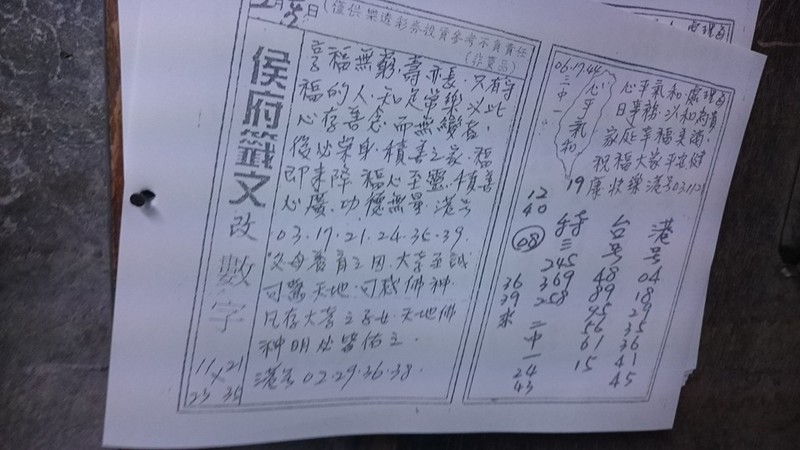 月 日(僅供樂透彩券投資參考不負責任
(非賣品)
侯府籤文
改數字
11 21
×
23 35
享福無窮.壽亦長.只有守
福的人.知足常樂.以此
心存善念.而無變者.
後必榮昌.積善之家.福
即來降.福心至靈.積善
心廣.功德無量.港号
03.17.21.24.35.39.
父母養育之恩.大孝至誠
可驚天地.可 佛神
凡存大孝之子女.天地佛
神明必皆佑之.
港号02.29.36.38.
06.17.44
三中一
心平氣和
19
心平氣和.處理每
日事務.以和為貴
家庭幸福美滿.
祝福大家平安健
康快樂港号03.11.2
港号
04
18
29
35
36
41
45
台号
48
89
45
56
61
15
特三
245
369
258
二中一
24
43
12
40
08
36
39
來